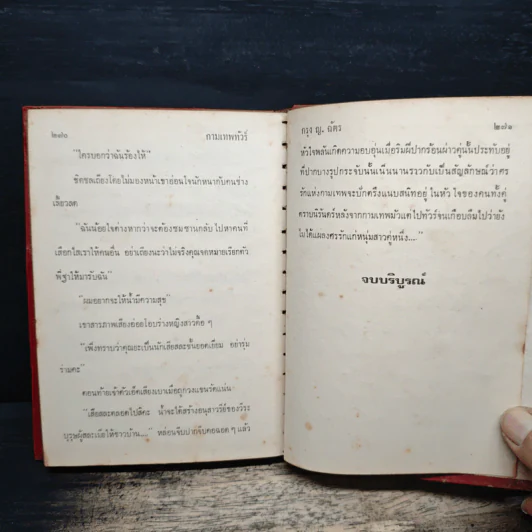 ๒๗๐ กามเทพทัวร์
"ใครบอกว่าฉันร้องไห้"
ชิดชลเถียงโดยไม่มองหน้าเขาอ่อนใจนักหนากับคนช่าง
เสียวลด
"ฉันน้อยใจต่างหากว่าจะต้องซมซานกลับ ไปหาคนที่
เสือกใสเราให้คนอื่น อย่าเถียงนะว่าไม่จริงคุณจดหมายเรียกตัว
พี่ฐาให้มารับฉัน"
"ผมอยากจะให้น้ำมีความสุข"
เขาสารภาพเสียงอ่อยโอบร่างหญิงสาวคือ ๆ
"เพิ่งทราบว่าคุณยะเป็นนักเสียสละชั้นยอดเยี่ยม อย่ารุ่ม
ร่ามคะ"
ตอนท้ายเจ้าตัวเอ็ดเสียงเบาเมื่อถูกวงแขนรัดแน่น
"เสียสละตลอดไปสิคะ น้ำจะได้สร้างอนุสาวรีย์ของวีระ
บุรุษผู้สละเมียให้ชาวบ้าน...." หล่อนจีบปากจีบคอฉอด ๆ แล้ว
กรุง ญ. ฉัตร ๒๗๑
หัวใจพลันเกิดความอบอุ่นเมื่อริมฝีปากร้อนผ่าวคู่นั้นประทับอยู่
ที่ปากบางรูปกระจับนั้นเนิ่นนานราวกับเป็นสัญลักษณ์ว่าศร
รักแห่งกามเทพจะปักตรึงแนบสนิทอยู่ ในหัว ใจของคนทั้งคู่
ตราบนิรันดร์หลังจากกามเทพมัวแต่ไปทัวร์จนเกือบลืมไปว่ายัง
ไม่ได้แผลงศรรักแก่หนุ่มสาวคู่หนึ่ง...."
จบบริบูรณ์